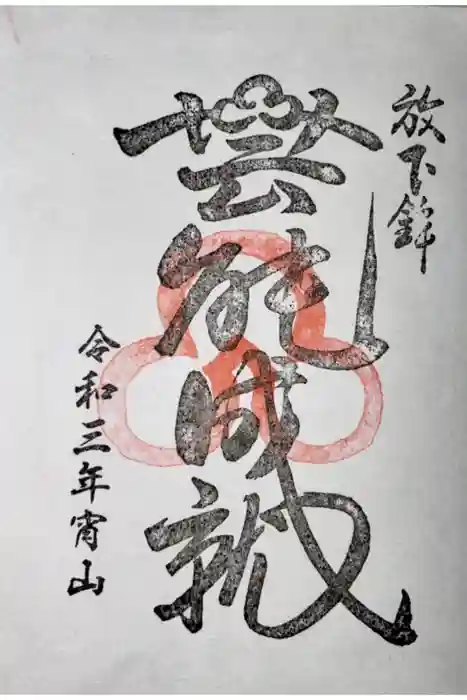 放下鉾
芸能成就
令和三年宵山